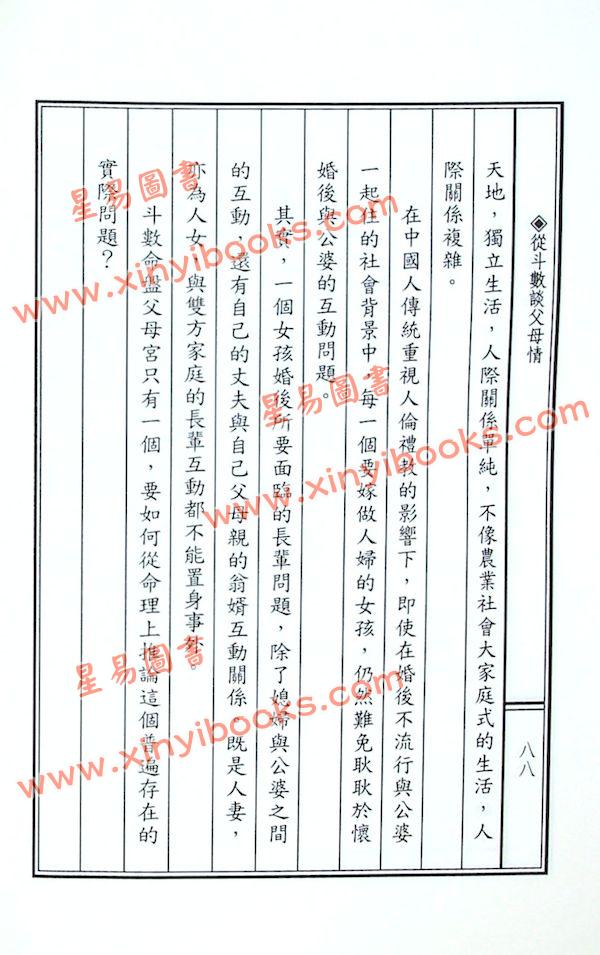 ◈從斗數談父母情
八八
天地，獨立生活，人際關係單純，不像農業社會大家庭式的生活，人
際關係複雜。
在中國人傳統重視人倫禮教的影響下，即使在婚後不流行與公婆
一起住的社會背景中，每一個要嫁做人婦的女孩，仍然難免耿耿於懷
婚後與公婆的互動問題。
其實，一個女孩婚後所要面臨的長輩問題，除了媳婦與公婆之間
的互動，還有自己的丈夫與自己父母親的翁婿互動關係，既是人妻，
亦為人女，與雙方家庭的長輩互動都不能置身事外。
斗數命盤父母宮只有一個，要如何從命理上推論這個普遍存在的
實際問題？
星易圖書
www.xinyibooks.com
星易圖書
www.xinyibooks.com
星易圖書
www.xinyibooks.com